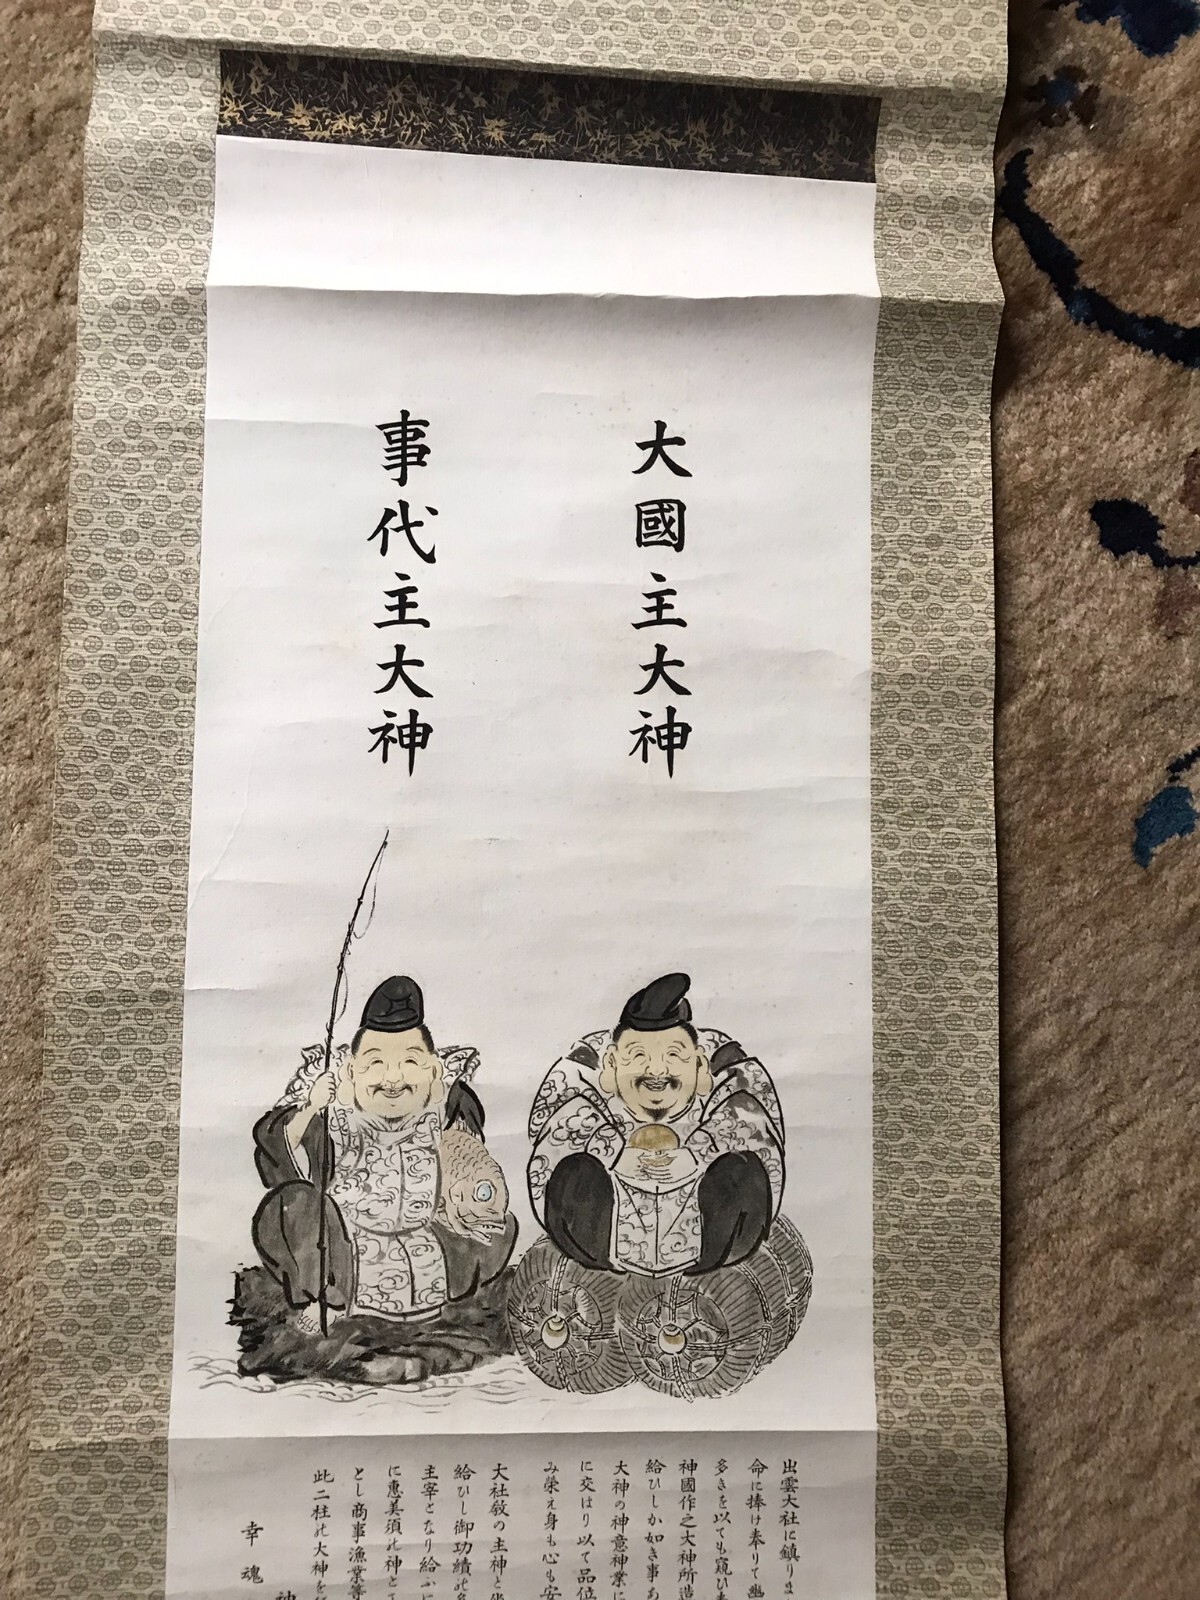 大國主大神
事代主大神
出雲大社に鎮りま
命に捧け奉りて幽
多きを以ても窺ひ
神國作之大神所造
給ひしか如き事あ
大神の神意神業に
に交はり以て品位
み榮え身も心も安
大社教の主神と
給ひし御功績
主宰となり給ふに
に惠美須神と
とし商事漁業等
此二柱大神を
幸魂
神